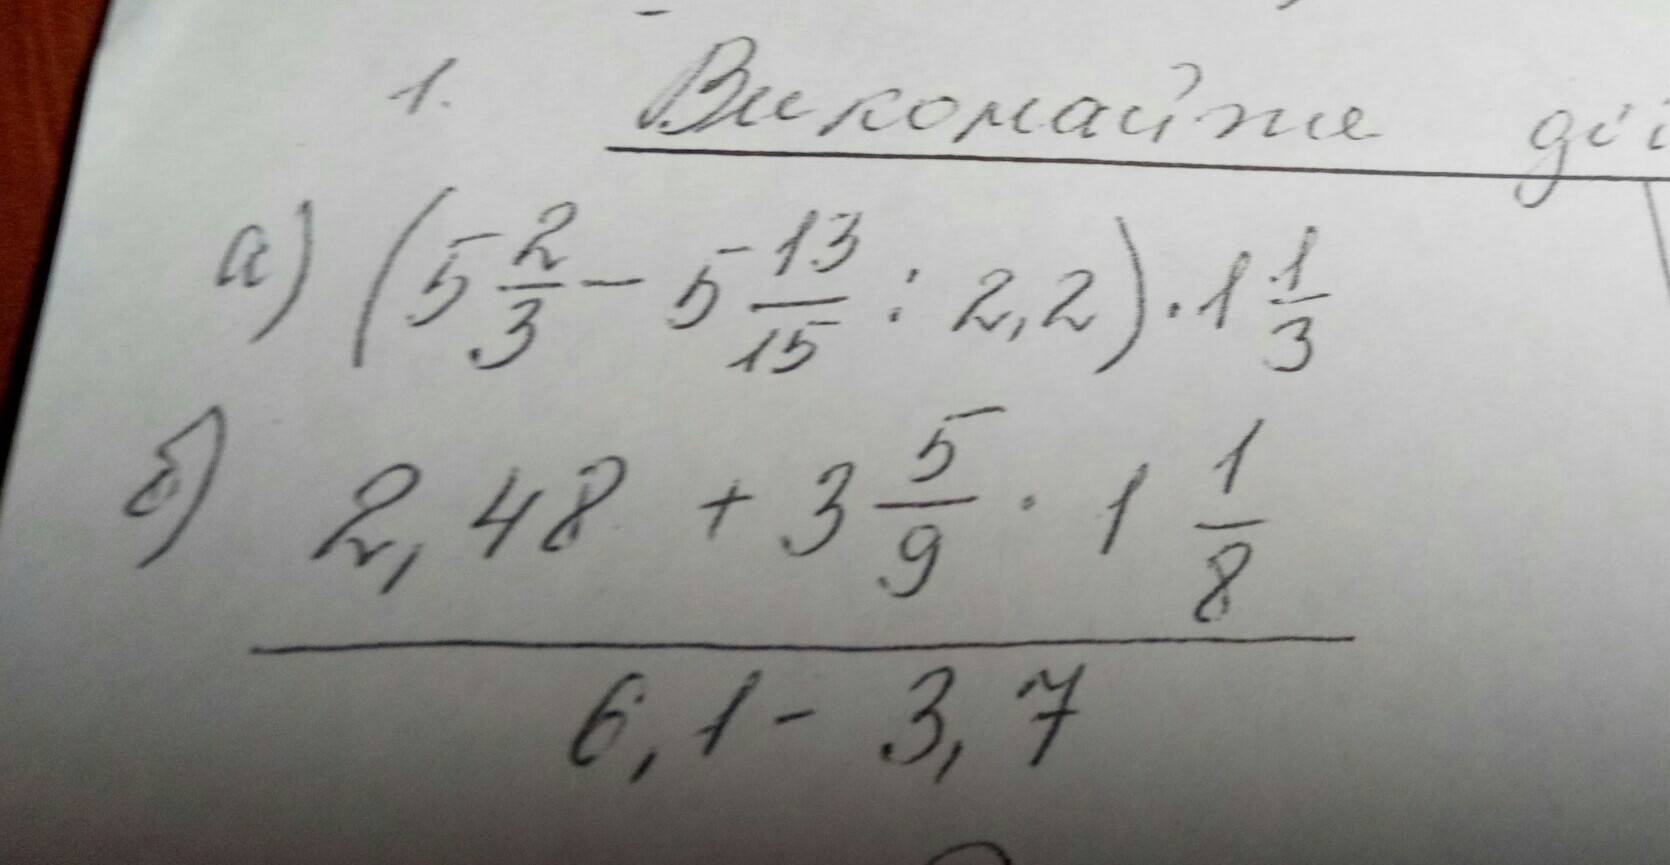 1. Виконайте дії
а) (5 2/3 - 5 13/15 : 2,2) · 1 1/3
б) 2,48 + 3 5/9 · 1 1/8
6,1 - 3,7